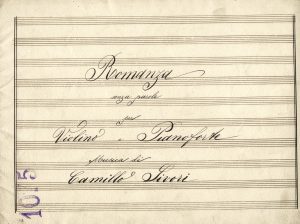 Romanza
senza parole
per
Violino e Pianoforte
Musica di
Camillo Sivori
1075